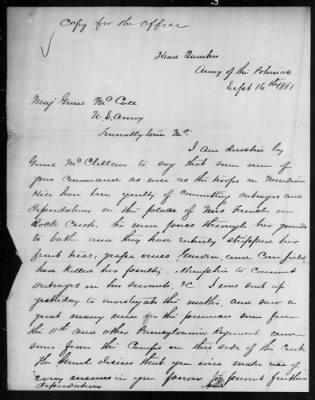 Copy for the Officer
Head Quarters
Army of the Potomac
Sept 16th 1861
Maj Genl McCall
U.S. Army
Tennallytown Md
I am directed by
Genl McClellan to say that some men of
your command as well as the troops on Meridian
Hill have been guilty of committing outrages and
depredations on the palace of Mrs on
Rock Creek, the men passes through her grounds
to bath and they have entirely stripped her
fruit trees, grape vines garden, and Corn field,
have killed her poultry. Attempted to Commit
outrages on her servants. &c I was sent up
yesterday to investigate the matter, and saw a
great many men on the premises some from
the 11th and other Pennsylvania Regiment and
some from the Camps on this side of the Creek
The Genl desires that you will make use of
every means in your power to prevent further
depredations